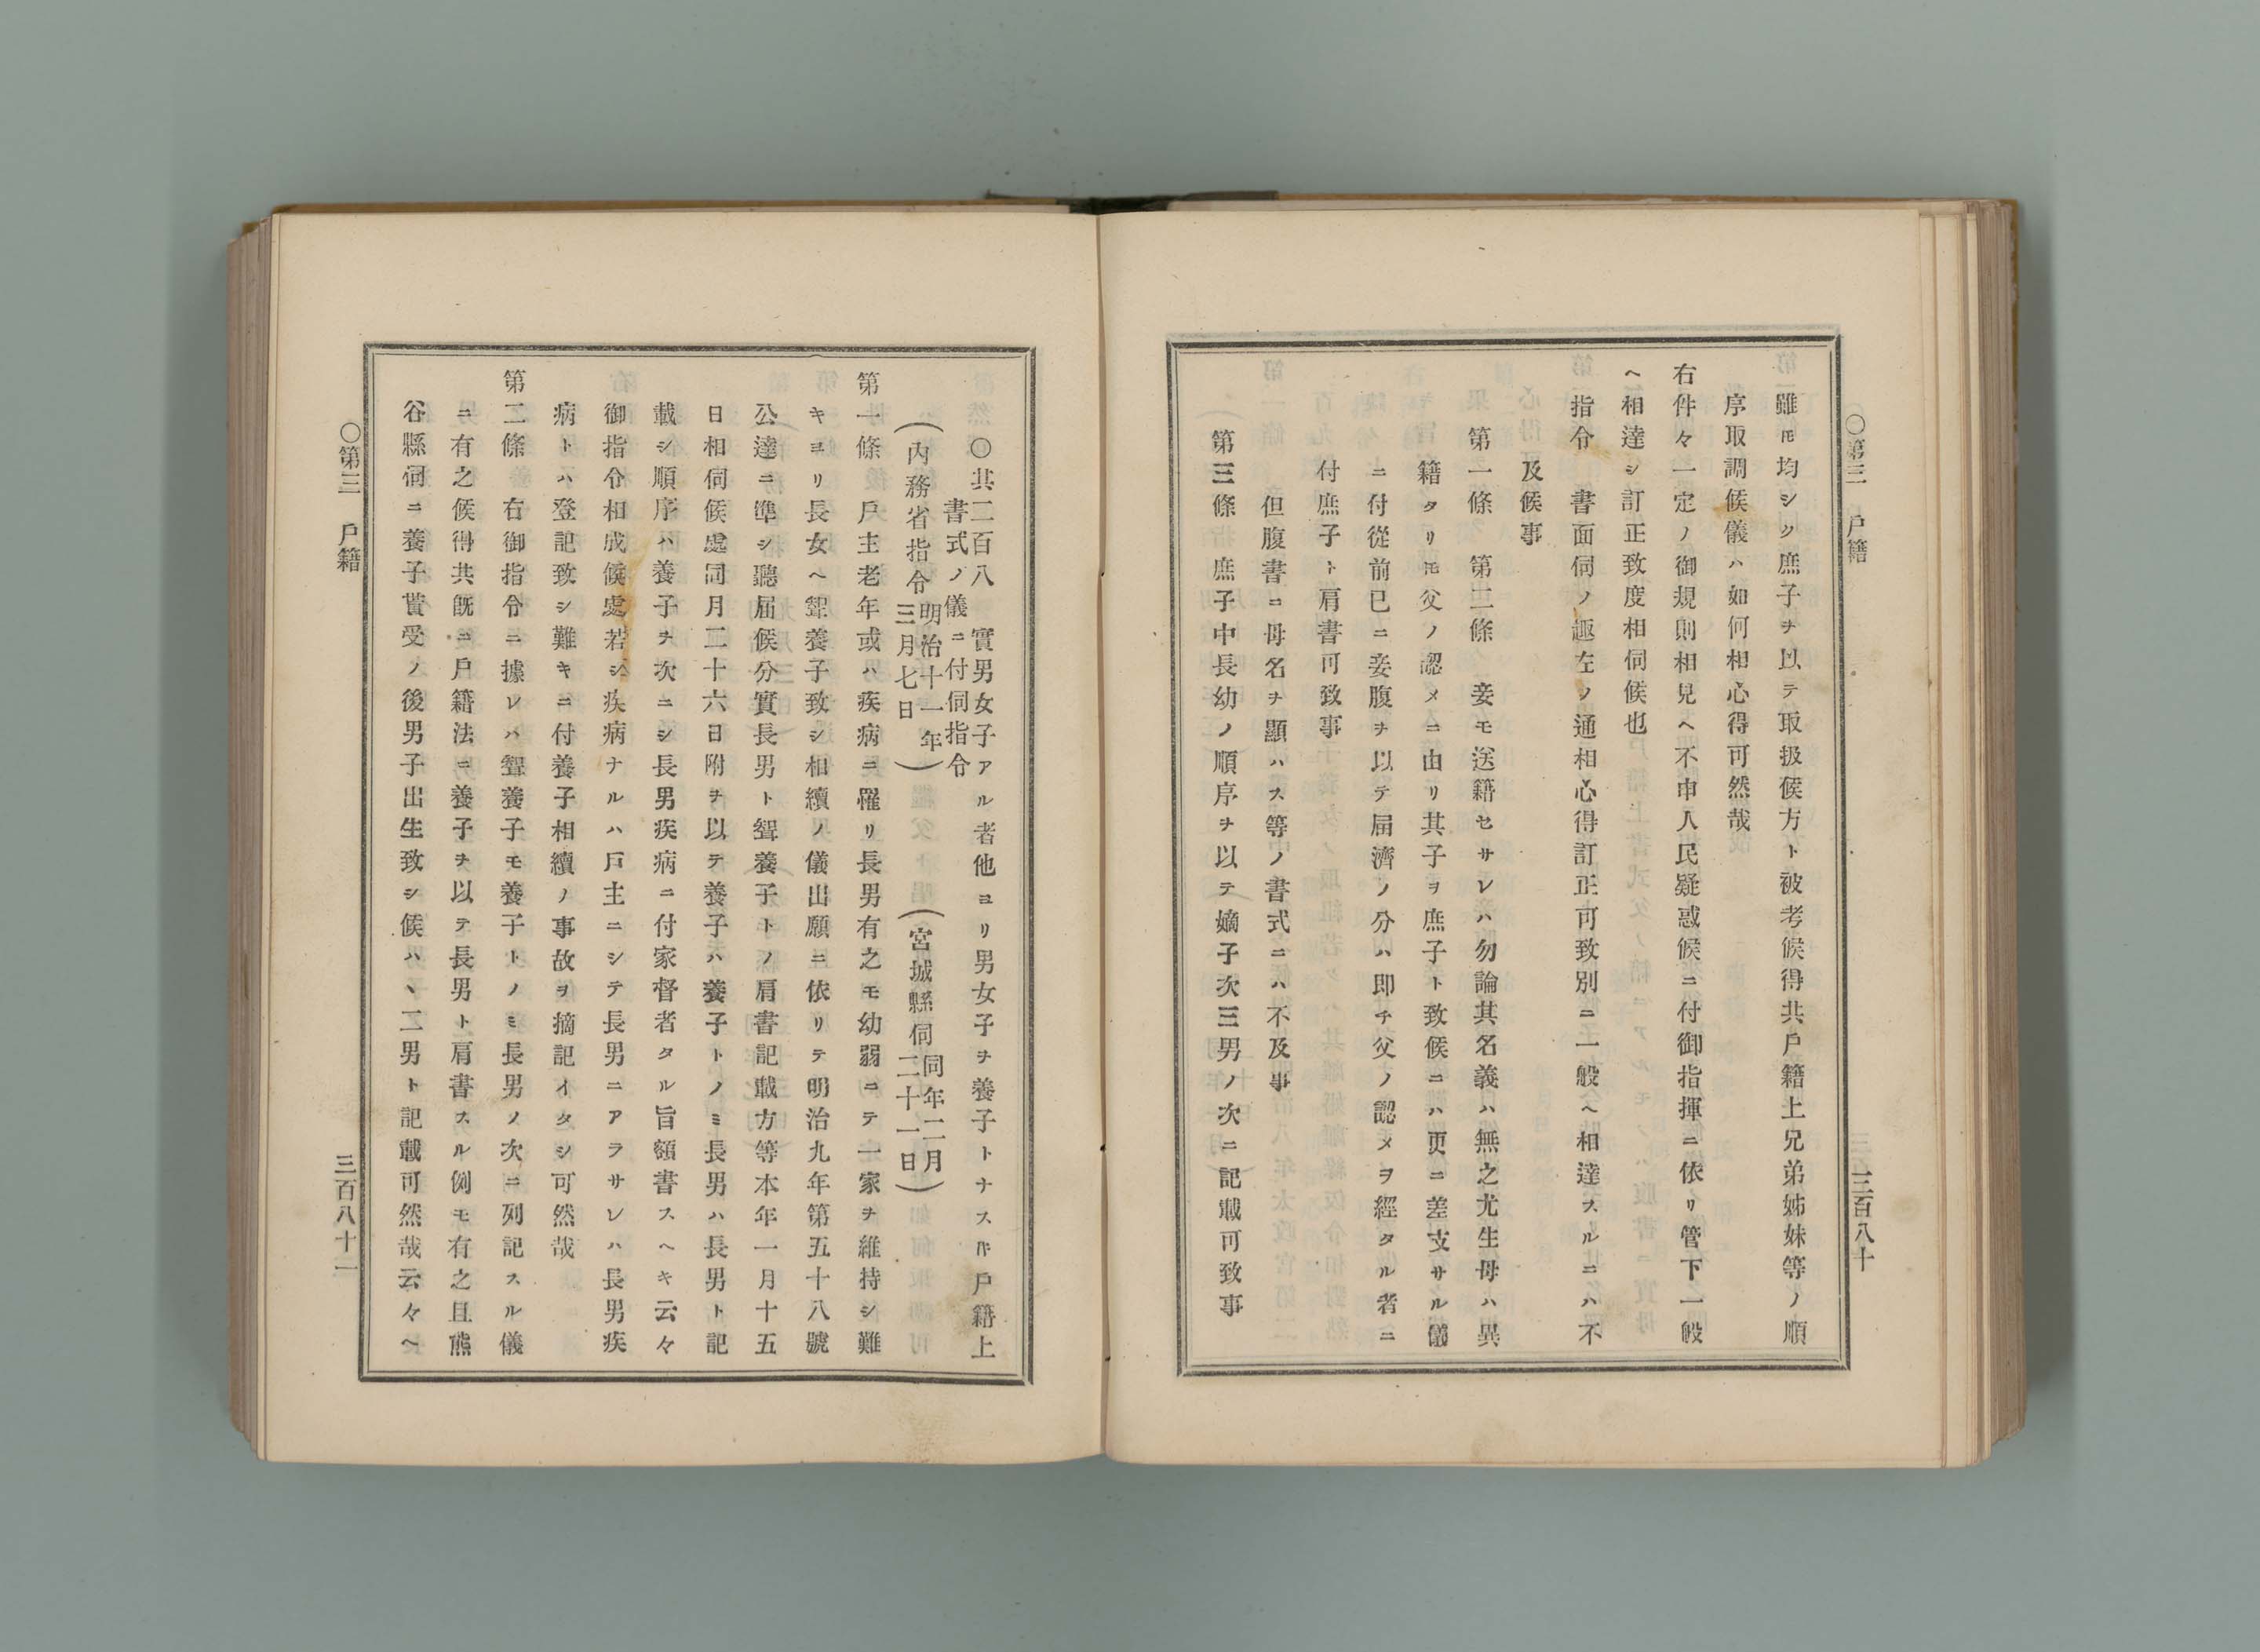 ○第三　戸籍
三百八十
雖𪜈均シク庶子ヲ以テ取扱候方ト被考候得共戸籍上兄弟姊妹等ノ順
序取調候儀ハ如何相心得可然哉
右件々一定ノ御規則相見ヘ不申人民疑惑候ニ付御指揮ニ依リ管下一般
ヘ相達シ訂正致度相伺候也
指令　書面伺ノ趣左ノ通相心得訂正可致別ニ一般ヘ相達スルニハ不
及候事
第一條　第二條　妾モ送籍セサレハ勿論其名義ハ無之尤生母ハ異
籍タリ𪜈父ノ認メニ由リ其子ヲ庶子ト致候ニハ更ニ差支サル儀
ニ付從前已ニ妾腹ヲ以テ屆濟ノ分ハ即チ父ノ認メヲ經タル者ニ
付庶子ト肩書可致事
但腹書ニ母名ヲ顯ハス等ノ書式ニハ不及事
第三條　庶子中長幼ノ順序ヲ以テ嫡子次三男ノ次ニ記載可致事
○其二百八　實男女子アル者他ヨリ男女子ヲ養子トナス𪜈戸籍上
書式ノ儀ニ付伺指令
（宮城縣伺 同年二月二十一日）
（內務省指令 明治十一年三月七日）
第一條　戸主老年或ハ疾病ニ罹リ長男有之モ幼弱ニテ一家ヲ維持シ難
キヨリ長女ヘ聟養子致シ相續ノ儀出願ニ依リテ明治九年第五十八號
公達ニ準シ聽屆候分實長男ト聟養子トノ肩書記載方等本年一月十五
日相伺候處同月二十六日附ヲ以テ養子ハ養子トノミ長男ハ長男ト記
載シ順序ハ養子ヲ次ニシ長男疾病ニ付家督者タル旨額書スヘキ云々
御指令相成候處若シ疾病ナルハ戸主ニシテ長男ニアラサレハ長男疾
病トハ登記致シ難キニ付養子相續ノ事故ヲ摘記イタシ可然哉
第二條　右御指令ニ據レハ聟養子モ養子トノミ長男ノ次ニ列記スル儀
ニ有之候得共既ニ戸籍法ニ養子ヲ以テ長男ト肩書スル例モ有之且熊
谷縣伺ニ養子貰受ノ後男子出生致シ候ハヽ二男ト記載可然哉云々ヘ
○第三　戸籍
三百八十一